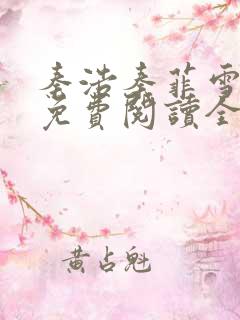 秦浩秦菲雪
免費閱讀全
黃占魁